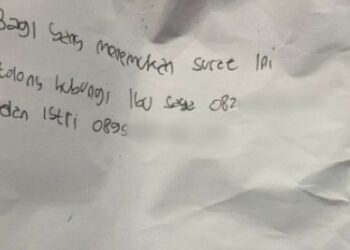 Bagi yang menemukan surat ini
tolong hubungi Ibu saya 082
dan istri 0895